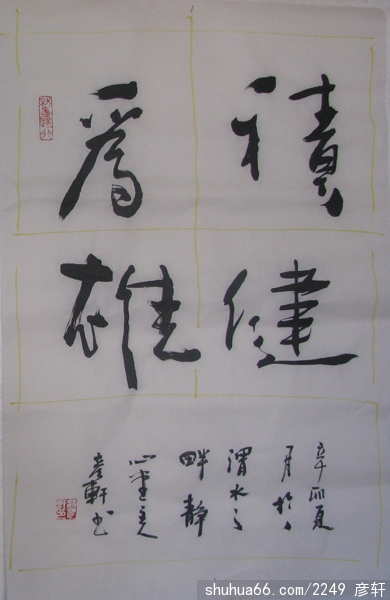 積健
為雄
辛卯夏
月於
渭水之
畔静
心堂主
彦軒书
shuhua66.com/2249 彦轩